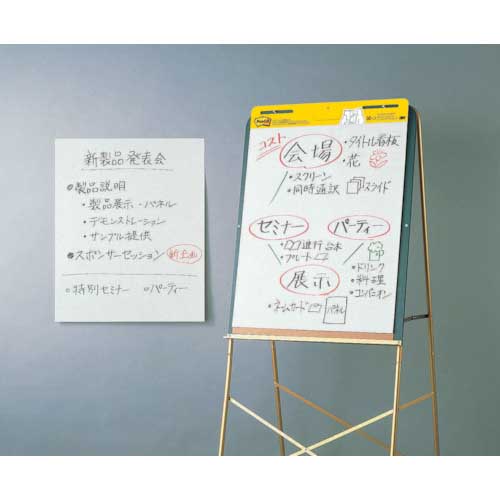 新製品発表会
●製品説明
・製品展示・パネル
・デモンストレーション
・サンプル提供
●スポンサーセッション
○特別セミナー ○パーティー
Post-it
3M
コスト
会場
・タイトル看板
・花
・スクリーン
・同時通訳
スライド
セミナー
パーティー
・進行台本
展示
・ドリンク
・料理
・コンパニオン
・ネームカード
パネル